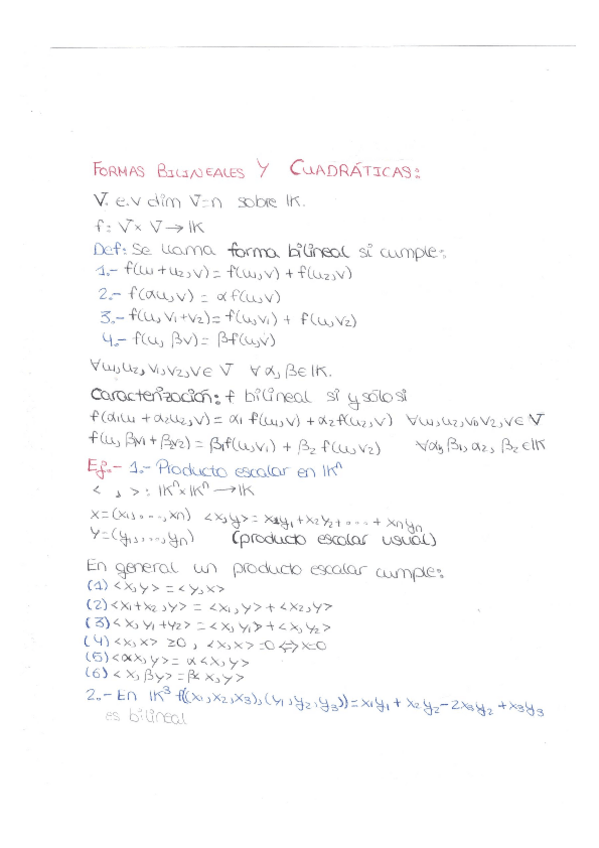 FORMAS BILINEALES Y CUADRÁTICAS:
V e.v dim V=n sobre IK.
f: V×V→IK
Def: Se llama forma bilineal si cumple:
1.- f(u1+u2,v)=f(u1,v)+f(u2,v)
2.- f(αu,v) = αf(u,v)
3.- f(u,v1+v2)=f(u,v1)+ f(u,v2)
4.- f(u, βv)= βf(u,v)
∀u1,u2,v1,v2,v∈V ∀α,β∈IK.
Caracterización: f bilineal si y sólo si
f(α1u1+α2u2,v)=α1 f(u1,v)+α2f(u2,v) ∀u1,u2,v1,v2,v∈V
f(u,β1v1+β2v2)=β1f(u,v1)+β2 f(u,v2) ∀α1,β1,α2,β2∈IK
Ej.- 1.- Producto escalar en IKⁿ
< , > : IKⁿ×IKⁿ→IK
x=(x1,...,xn) <x,y>=x1y1+x2y2+....+xnyn
y=(y1,...,yn) (producto escalar usual)
En general un producto escalar cumple:
(1)<x,y>=<y,x>
(2)<x1+x2,y>=<x1,y>+<x2,y>
(3)<x,y1+y2>=<x,y1>+<x,y2>
(4)<x,x>≥0, <x,x>=0⇔x=0
(5)<αx,y>=α<x,y>
(6)<x,βy>=β<x,y>
2.- En IK³ f((x1,x2,x3),(y1,y2,y3))=x1y1+x2y2-2x3y2+x3y3
es bilineal